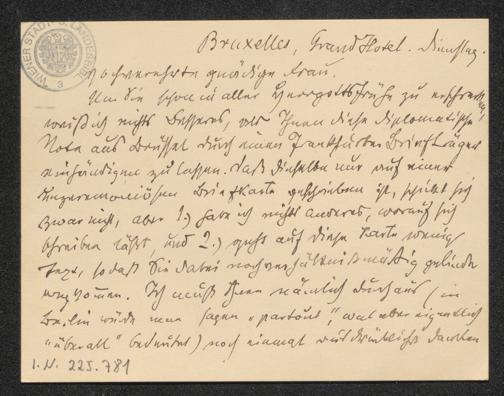 WIENER STADT- U. LANDESBIBL.
3
Bruxelles, Grand Hotel. Dienstag.
Hochverehrte gnädige Frau.
Um Sie schon in aller Herrgottsfrühe zu erschrecken,
weiß ich nichts Besseres, als Ihnen diese diplomatische
Note aus Brüssel durch einen Frankfurter Briefträger
einhändigen zu lassen. Daß dieselbe nur auf einer
unzeremoniösen Briefkarte geschrieben ist, schickt sich
zwar nicht, aber 1.) habe ich nichts anderes, worauf sich
schreiben läßt, und 2.) geht auf diese Karte wenig
Text, sodaß Sie dabei noch verhältnißmäßig gelinde
wegkommen. Ich muß Ihnen nämlich durchaus (in
Berlin würde man sagen "partout", was aber eigentlich
"überall" bedeutet) noch einmal ausdrücklichst danken
I.N. 225.781